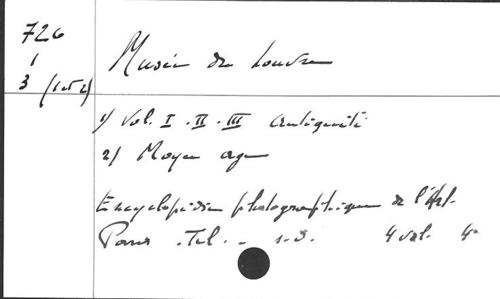 726
1
3 (1 et 2)
Musée du Louvre
1) Vol. I . II . III Antiquité
2) Moyen age
Encyclopédie photographique de l'Art.
Paris . Tel . - s.d. 4 vol. 4°